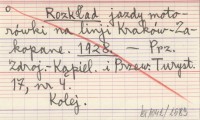 Rozkład jazdy moto-
rówki na linji Kraków-Za-
kopane. 1928. — Prz.
Zdroj.-Kąpiel. i Przew. Turyst.
17, nr 4.
Kolej.